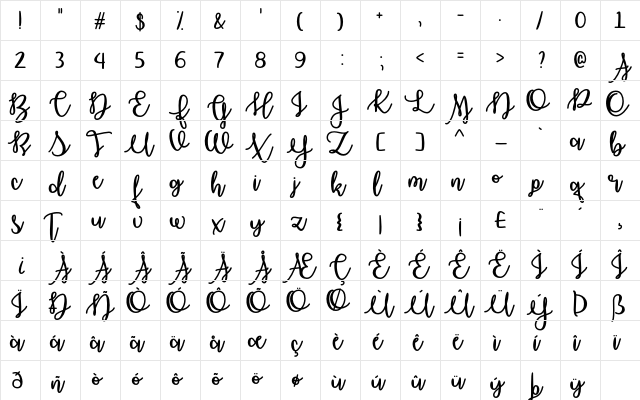 ! " # $ % & ' ( ) + , - . / 0 1
2 3 4 5 6 7 8 9 : ; < = > ? @ A
B C D E F G H I J K L M N O P Q
R S T U V W X Y Z [ ] ^ _ ` a b
c d e f g h i j k l m n o p q r
s t u v w x y z { | } ¡ £ ¨ ´ ¸
ı À Á Â Ã Ä Å Æ Ç È É Ê Ë Ì Í Î
Ï Ð Ñ Ò Ó Ô Õ Ö Ø Ù Ú Û Ü Ý Þ ß
à á â ã ä å æ ç è é ê ë ì í î ï
ð ñ ò ó ô õ ö ø ù ú û ü ý þ ÿ